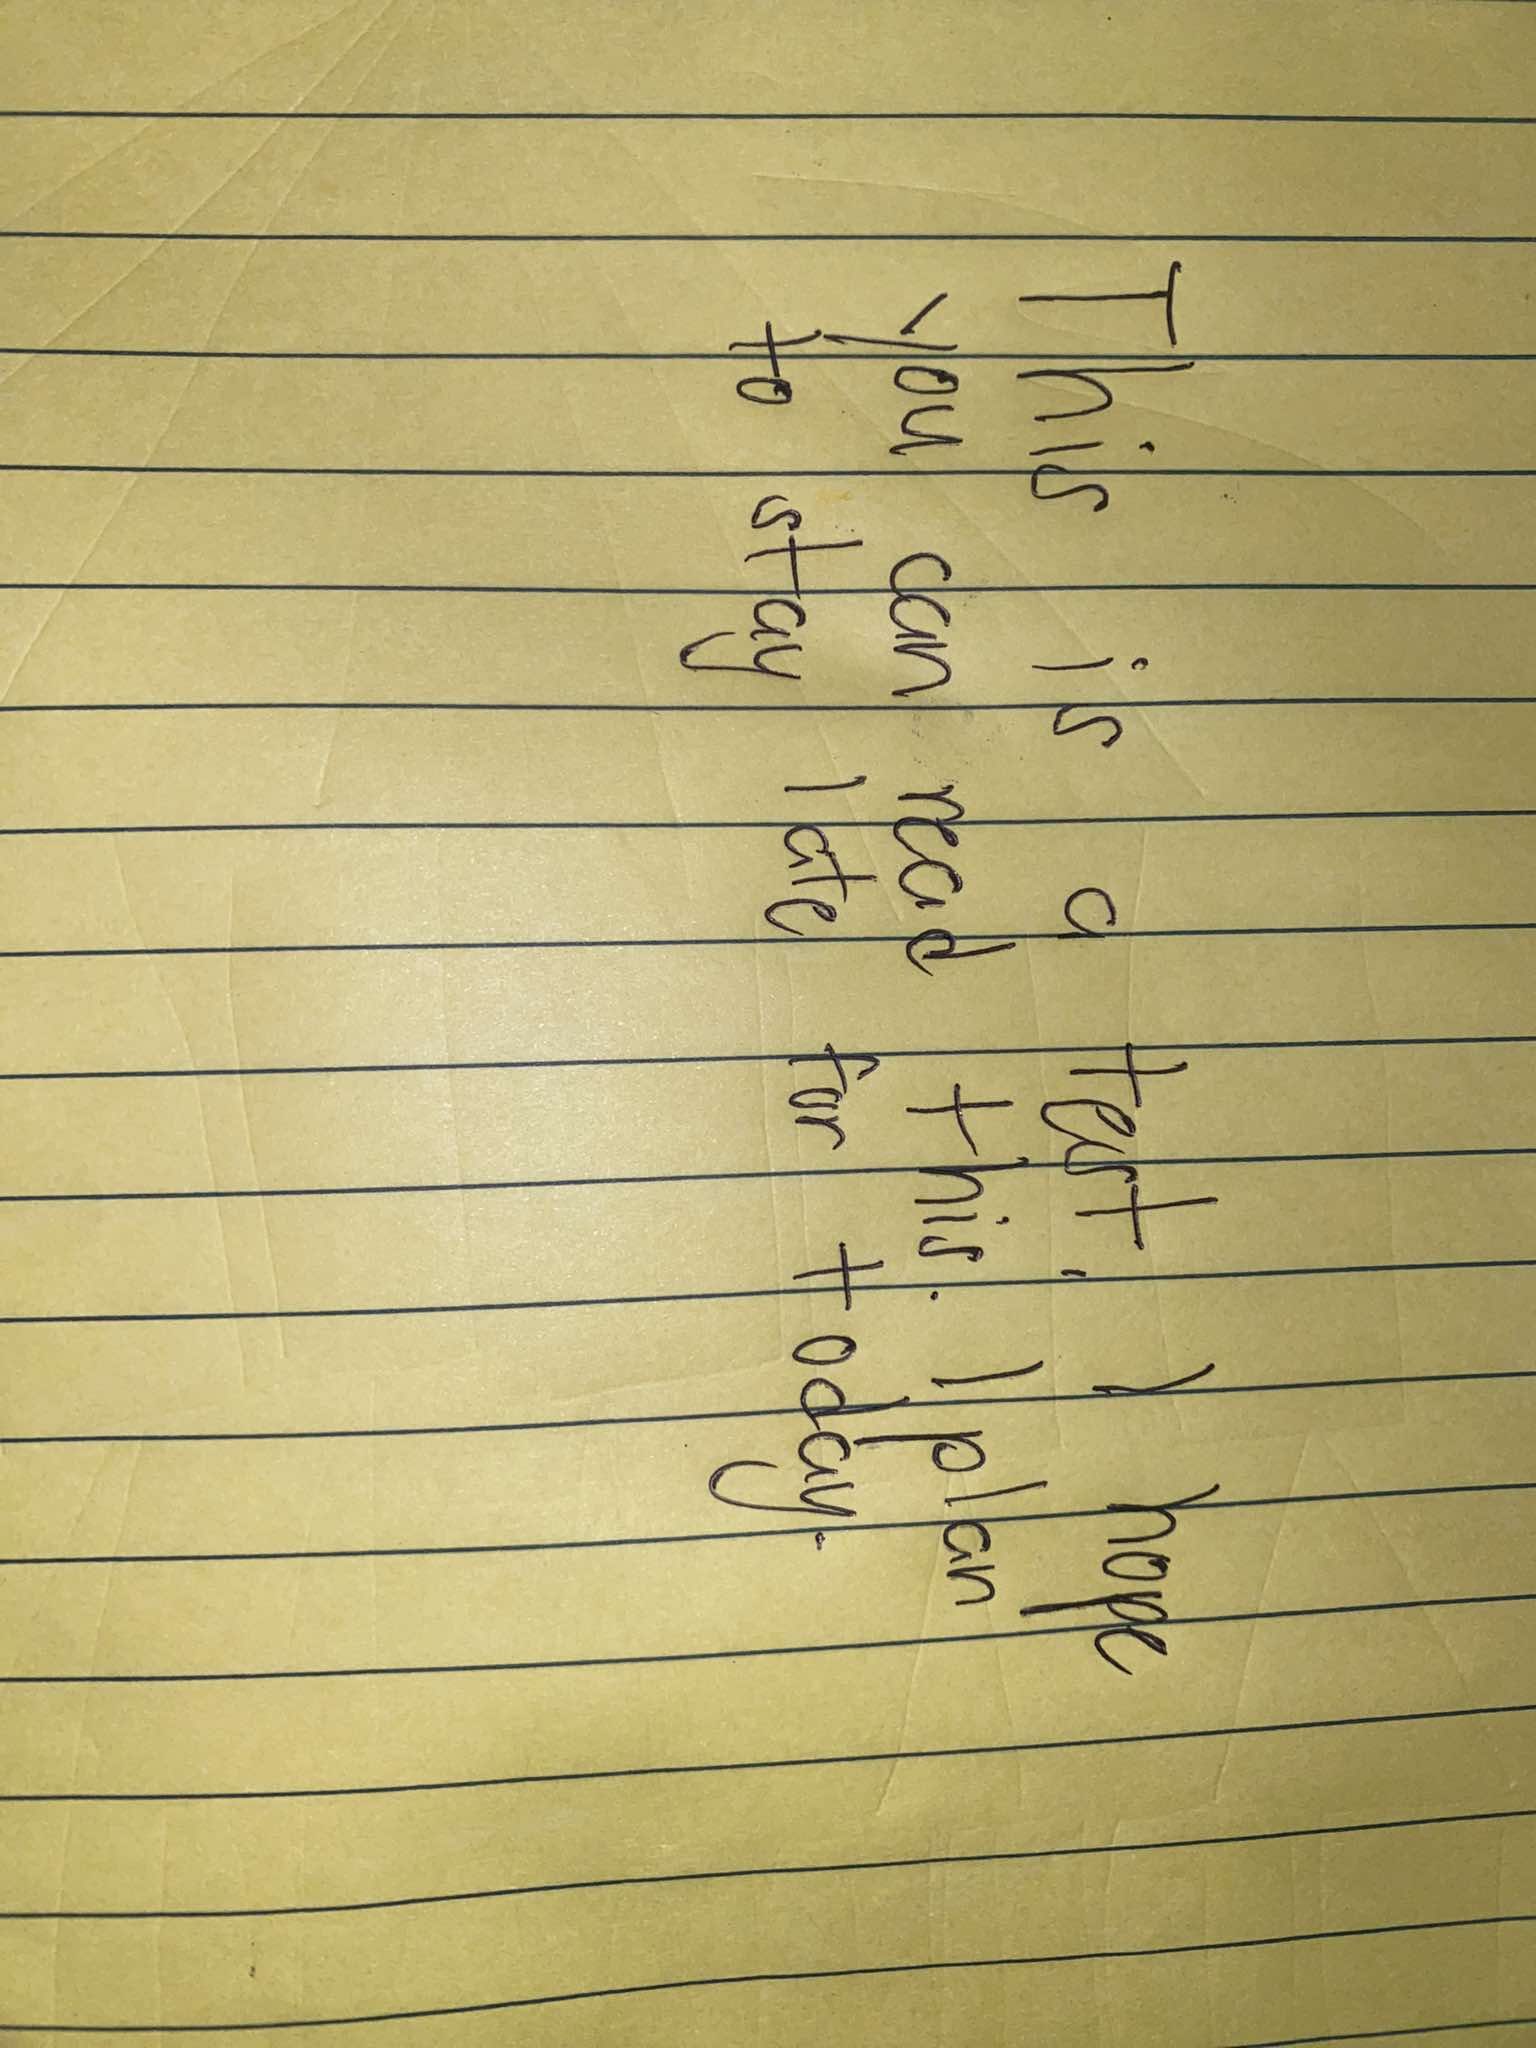 This is a test. I hope
you can read this. I plan
to stay late for today.